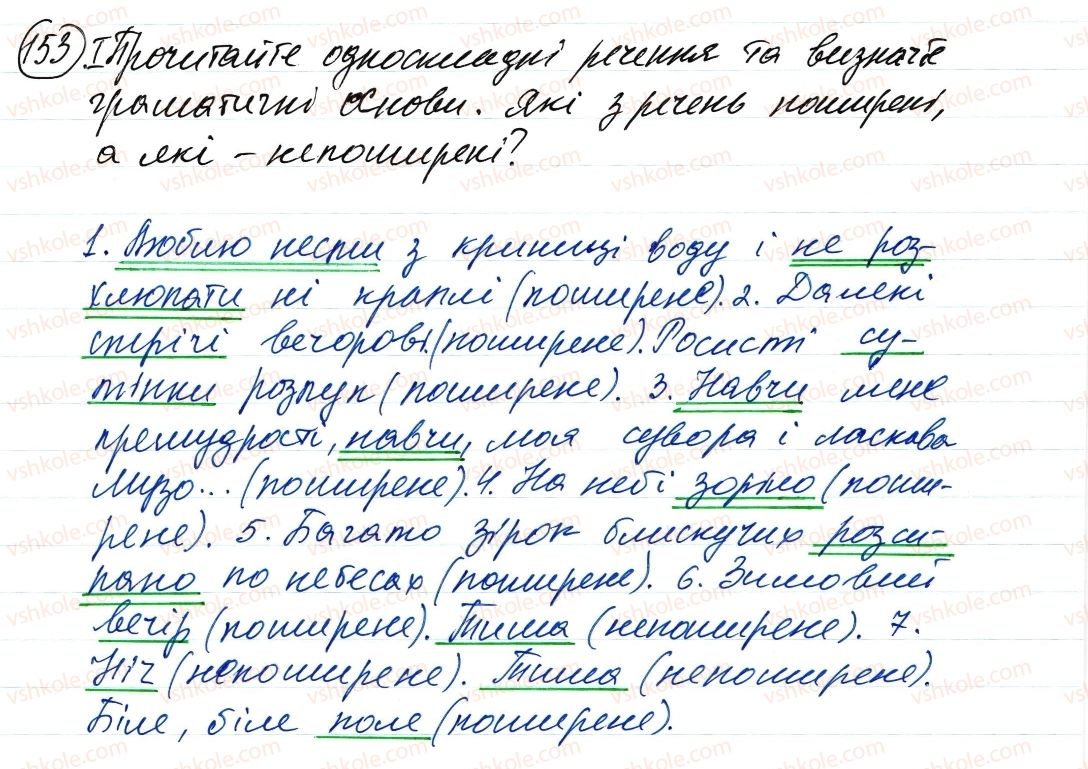 153 I Прочитайте односкладні речення та визначте
граматичні основи. Які з речень поширені,
а які – непоширені?
1. Люблю нести з криниці воду і не роз-
хлюпати ні краплі (поширене). 2. Далекі
стрічі вечорові (поширене). Росисті су-
тінки розлук (поширене). 3. Навчи мене
премудрості, навчи, моя сувора і ласкава
Музо... (поширене). 4. На небі зоряно (поши-
рене). 5. Багато зірок блискучих розси-
пано по небесах (поширене). 6. Зимовий
вечір (поширене). Тиша (непоширене). 7.
Ніч (непоширене). Тиша (непоширене).
Біле, біле поле (поширене).